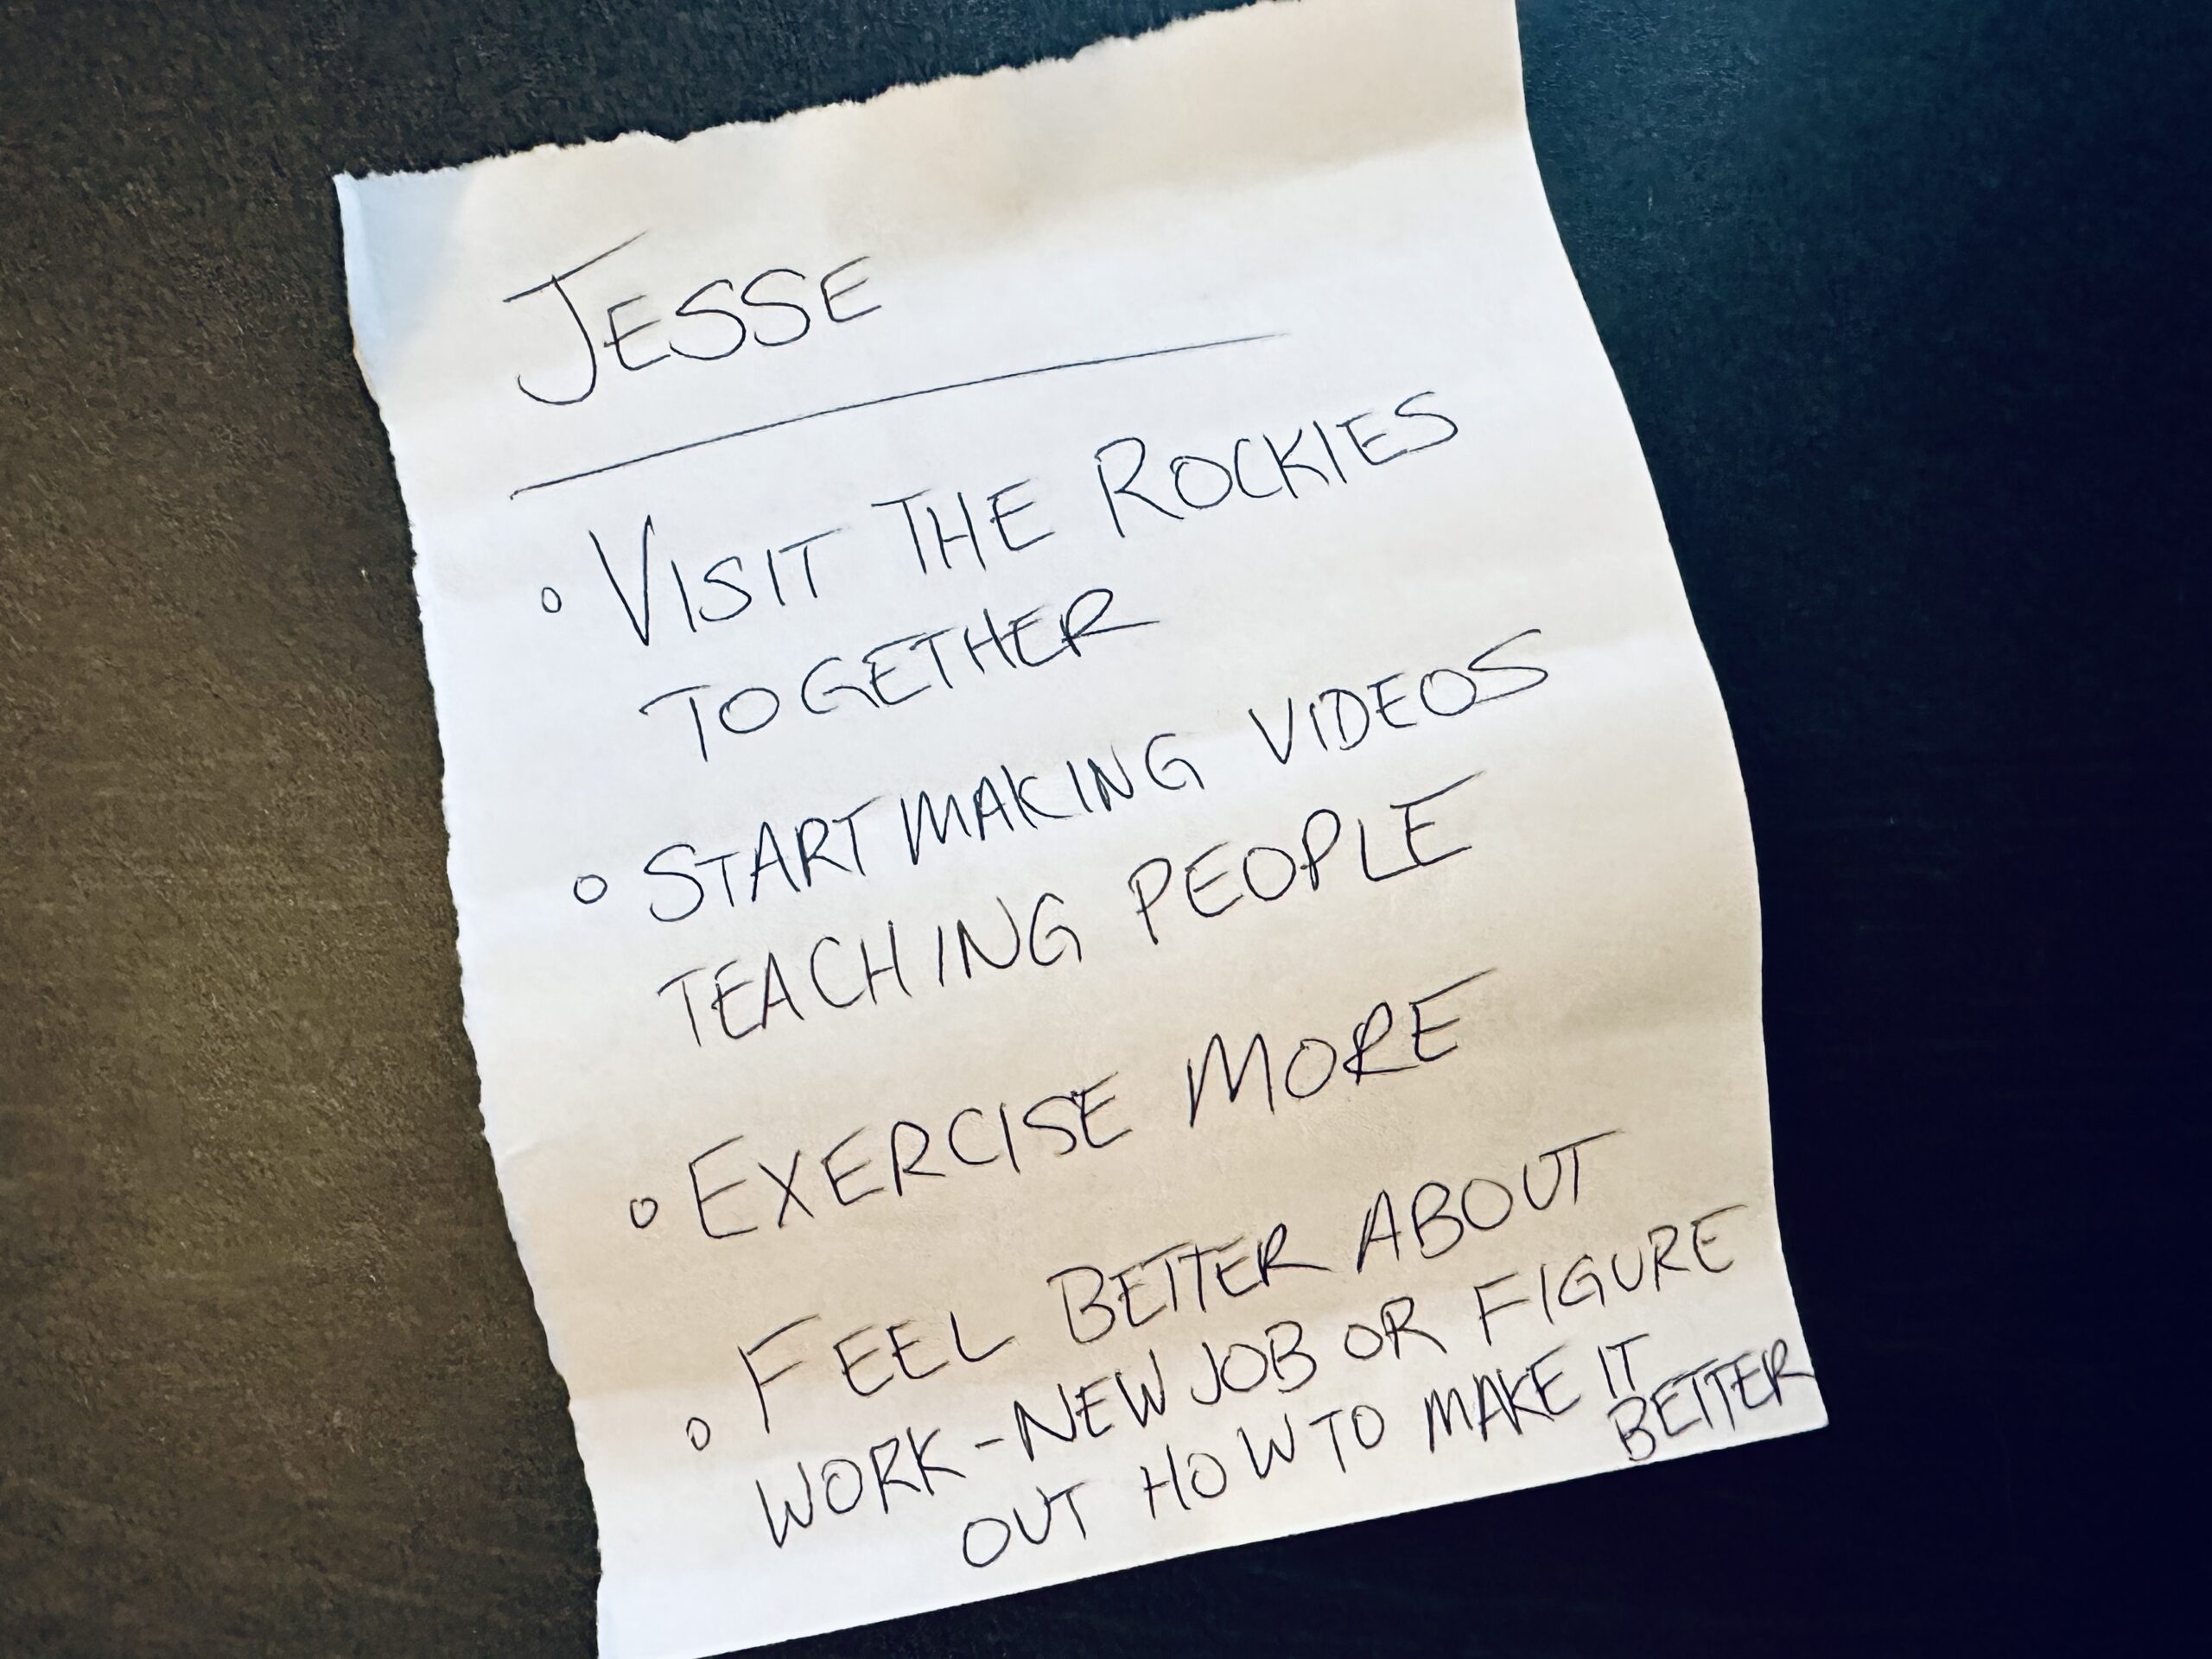 JESSE
° VISIT THE ROCKIES
TOGETHER
° START MAKING VIDEOS
TEACHING PEOPLE
° EXERCISE MORE
° FEEL BETTER ABOUT
WORK - NEW JOB OR FIGURE
OUT HOW TO MAKE IT
BETTER